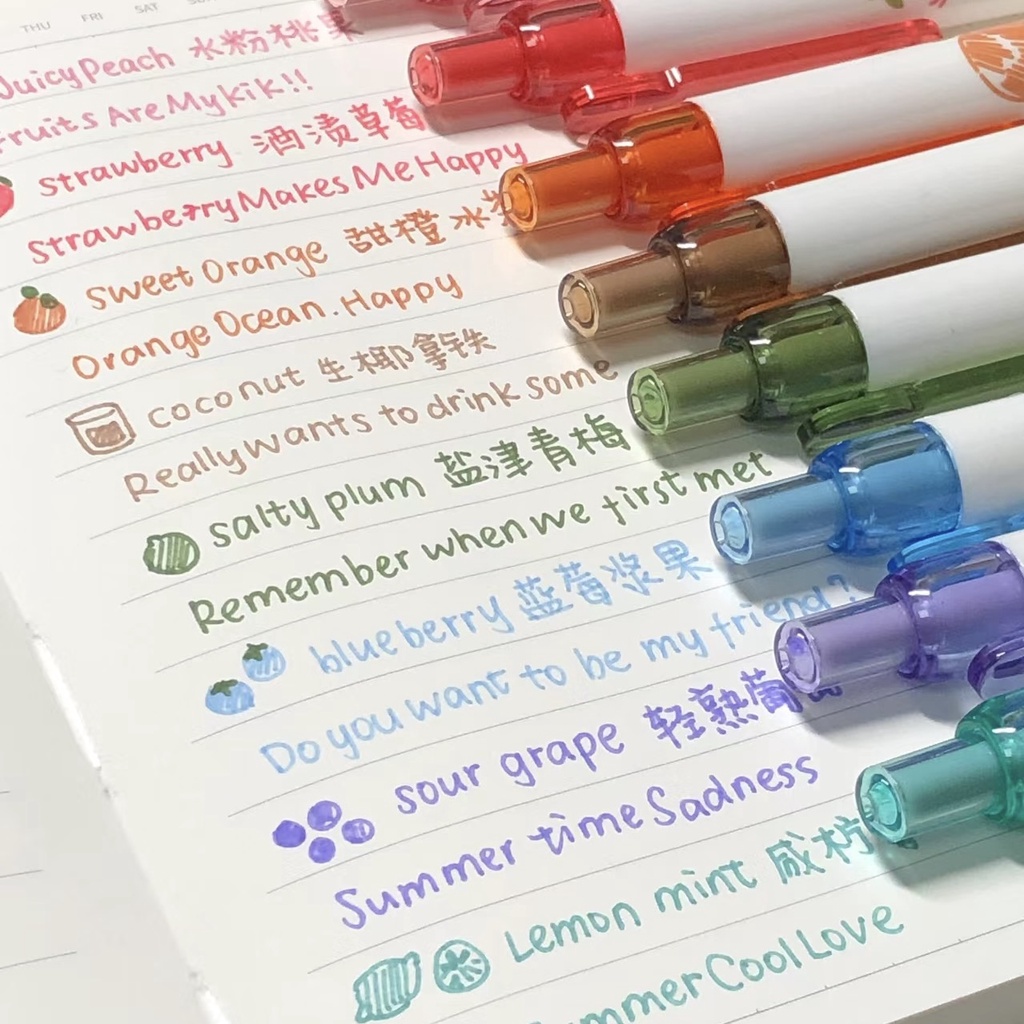 THU FRI SAT
Juicy Peach 水粉桃果
Fruits Are My kik!!
strawberry 酒渍草莓
Strawberry Makes Me Happy
sweet Orange 甜橙冰
Orange Ocean. Happy
coconut 生椰拿铁
Really wants to drink some
salty plum 盐津青梅
Remember when we first met
blueberry 蓝莓浆果
Do you want to be my friend?
sour grape 轻熟葡萄
Summer time Sadness
Lemon mint 咸柠
Summer Cool Love